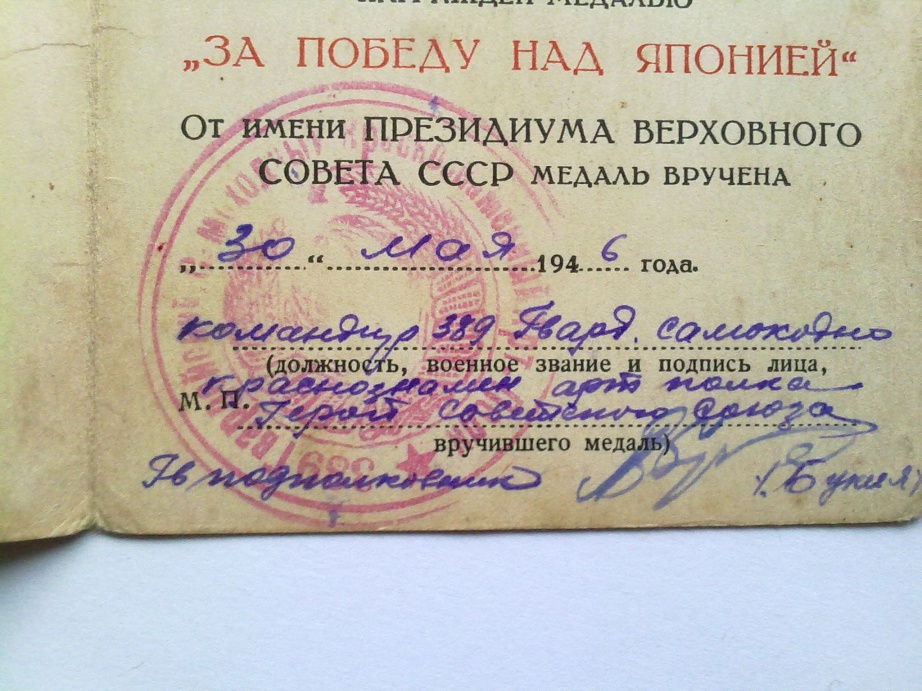 НАГРАЖДЕН МЕДАЛЬЮ
„ЗА ПОБЕДУ НАД ЯПОНИЕЙ“
От имени ПРЕЗИДИУМА ВЕРХОВНОГО
СОВЕТА СССР медаль вручена
„30“ мая 1946 года.
командир 389 Гвард. самоходно
(должность, военное звание и подпись лица,
краснознамен арт полка
М. П. Герой Советского Союза
вручившего медаль)
Гв подполковник
389